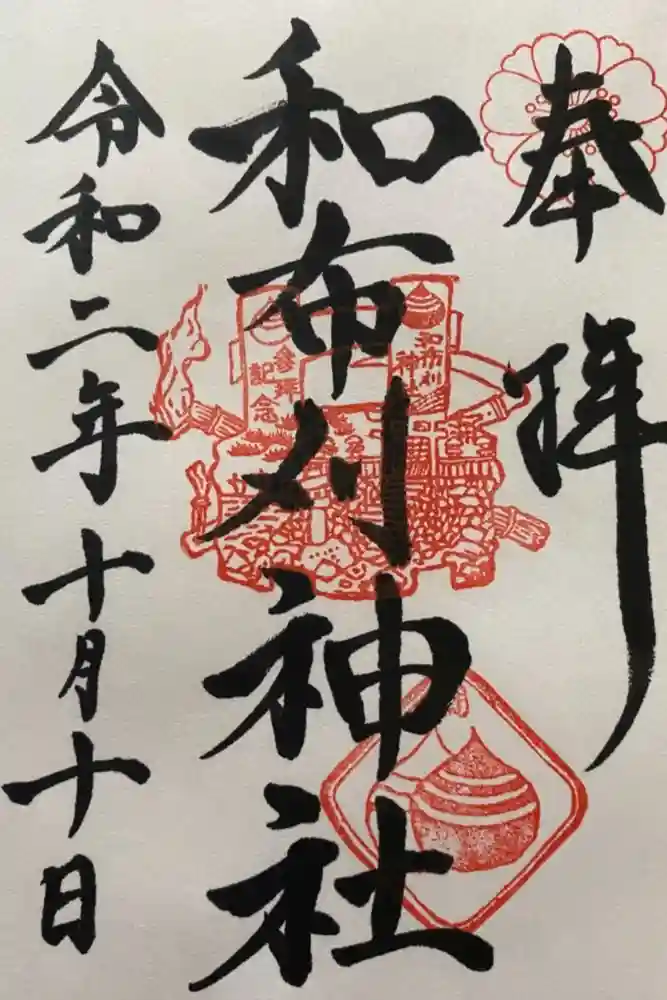 奉拝
和布刈神社
参拝
記念
和布刈
神社
令和二年十月十日